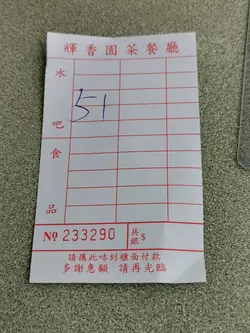 輝香園茶餐廳
水
吧
食
品
51
№ 233290
共
銀 $
請攜此咭到櫃面付款
多謝惠顧 請再光臨